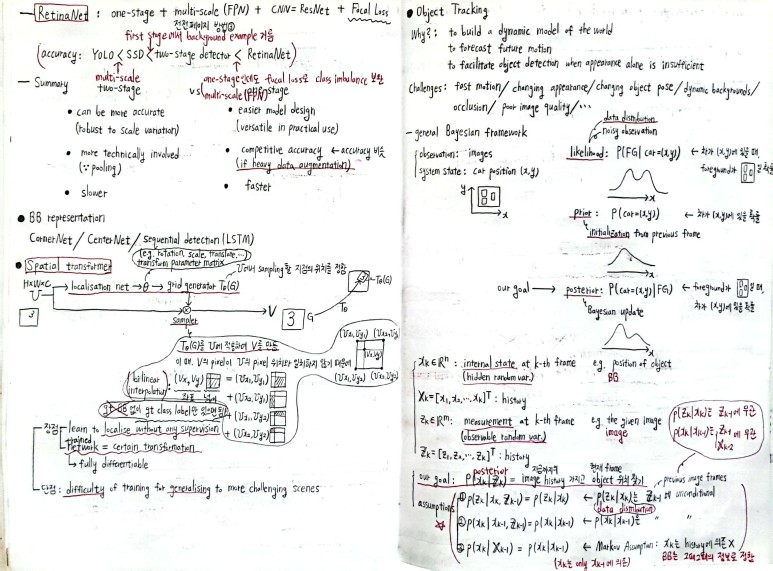 — RetinaNet : one-stage + multi-scale (FPN) + CNN=ResNet + Focal Loss
first stage에서 background example 거름
(accuracy: YOLO < SSD < two-stage detector < RetinaNet)
multi-scale
two-stage
one-stage인데도 focal loss로 class imbalance 보완
multi-scale (FPN)
— Summary
vs one-stage
• can be more accurate
(robust to scale variation)
• more technically involved
(∵ pooling)
• slower
• easier model design
(versatile in practical use)
• competitive accuracy ← accuracy 비슷
(if heavy data augmentation)
• faster
● BB representation
CornerNet / CenterNet / sequential detection (LSTM)
(e.g. rotation, scale, translate, ...)
● Spatial transformer
transform parameter matrix
U에서 sampling할 지점의 위치를 정함
H×W×C
U → localisation net → θ → grid generator Tθ(G)
Tθ(G)
sampler
V
3 G
Tθ
3
Tθ(G)를 U에 적용하여 V를 만듦
이때, V의 pixel이 U의 pixel 위치와 일치하지 않기 때문에
bilinear
interpolation
gt BB 없이 gt class label만 있으면 됨
장점 learn to localise without any supervision
trained
network = certain transformation
↳ fully differentiable
단점: difficulty of training for generalising to more challenging scenes
● Object Tracking
Why? : to build a dynamic model of the world
to forecast future motion
to facilitate object detection when appearance alone is insufficient
Challenges: fast motion / changing appearance / changing object pose / dynamic backgrounds /
occlusion / poor image quality / ...
data distribution
noisy observation
— general Bayesian framework
observation: images
system state: car position (x,y)
likelihood : P(FG | car=(x,y)) ← 차가 (x,y)에 있을 때,
foreground가
y
x
x
prior : P(car=(x,y)) ← 차가 (x,y)에 있을 확률
initialization from previous frame
x
our goal → posterior: P(car=(x,y) | FG) ← foreground가
차가 (x,y)에 있을 확률
Bayesian update
x
xk ∈ Rⁿ : internal state at k-th frame e.g. position of object
(hidden random var.) BB
Xk = [x1, x2, ... xk]ᵀ : history
zk ∈ Rᵐ : measurement at k-th frame e.g. the given image
(observable random var.) image
Zk = [z1, z2, ... zk]ᵀ : history
p(zk|xk)는 Zk-1에 무관
p(xk|xk-1)는 Zk-1에 무관
Xk-2
posterior 지금까지의 현재 frame
our goal : P(xk | Zk) = image history 가지고 object 위치 찾기
previous image frames
assumptions
① p(zk | xk, Zk-1) = p(zk | xk) ← p(zk|xk)는 Zk-1에 unconditional
data distribution
② p(xk | xk-1, Zk-1) = p(xk | xk-1) ← p(xk|xk-1)는 " "
③ p(xk | Xk-1) = p(xk | xk-1) ← Markov Assumption : xk는 history에 의존 X
(xk는 only xk-1에 의존)